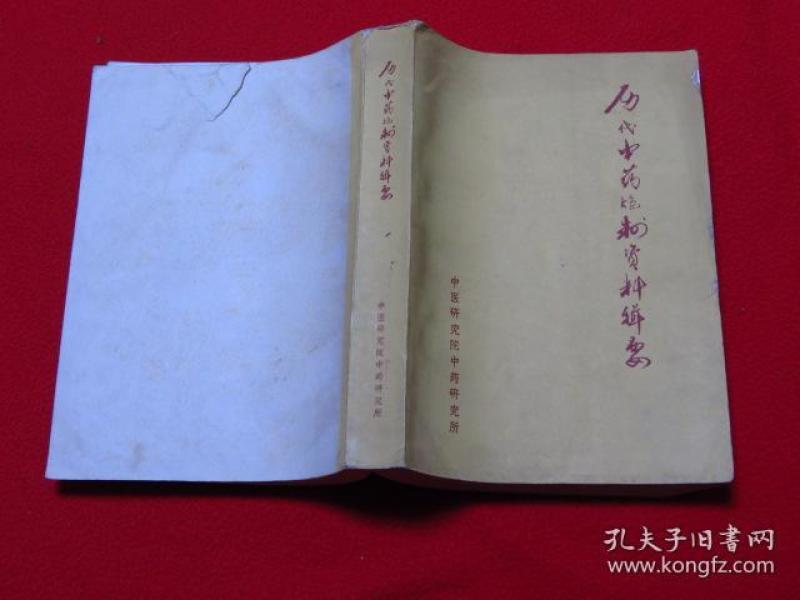 历代中药炮制资料辑要
中医研究院中药研究所
历代中药炮制资料辑要
中医研究院中药研究所
孔夫子旧書网
www.kongfz.com